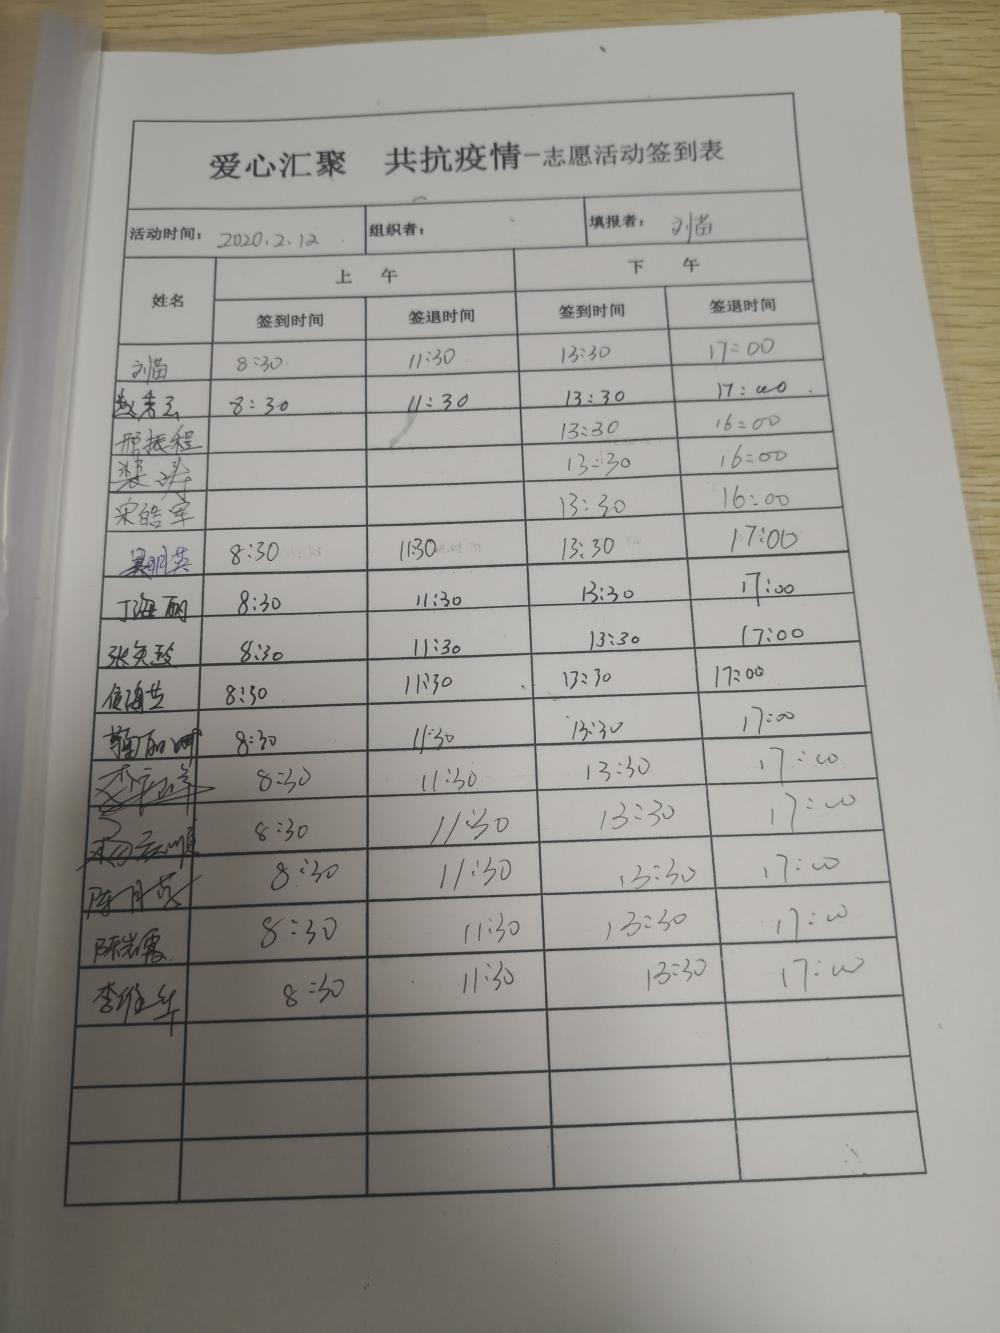 爱心汇聚 共抗疫情-志愿活动签到表
活动时间： 2020.2.12 组织者： 填报者： 刘苗
姓名 上 午 下 午
签到时间 签退时间 签到时间 签退时间
刘苗 8:30 11:30 13:30 17:00
8:30 11:30 13:30 17:00
邢振程 13:30 16:00
13:30 16:00
宋皓军 13:30 16:00
吴明英 8:30 11:30 13:30 17:00
丁海丽 8:30 11:30 13:30 17:00
8:30 11:30 13:30 17:00
8:30 11:30 13:30 17:00
8:30 11:30 13:30 17:00
8:30 11:30 13:30 17:00
8:30 11:30 13:30 17:00
陈月英 8:30 11:30 13:30 17:00
陈岩霞 8:30 11:30 13:30 17:00
李维华 8:30 11:30 13:30 17:00